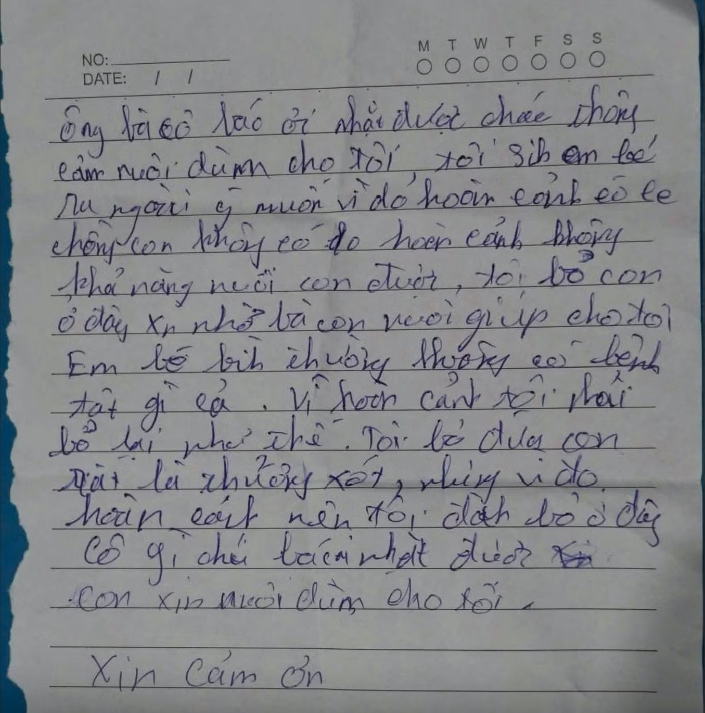 NO:
DATE: / /
M T W T F S S
ông bà cô bác ơi nhặt được cháu thông
cảm nuôi dùm cho tôi, tôi sih em bé
ra ngoài ý muốn vì do hoàn cảnh cô le
chồng con không có do hoàn cảnh không
khả năng nuôi con được, tôi bỏ con
ở đây xn nhờ bà con nuoi giúp cho tôi
Em bé bìh thường không có bệnh
tật gì cả. Vì hoàn cảnh tôi phải
bỏ lại như thế. Tôi bỏ đứa con
rất là thương xót, nhưng vì do
hoàn cảnh nên tôi đàh bỏ ở đây
Có gì chú bác nhặt được
con xin nuôi dùm cho tôi.
Xin cảm ơn